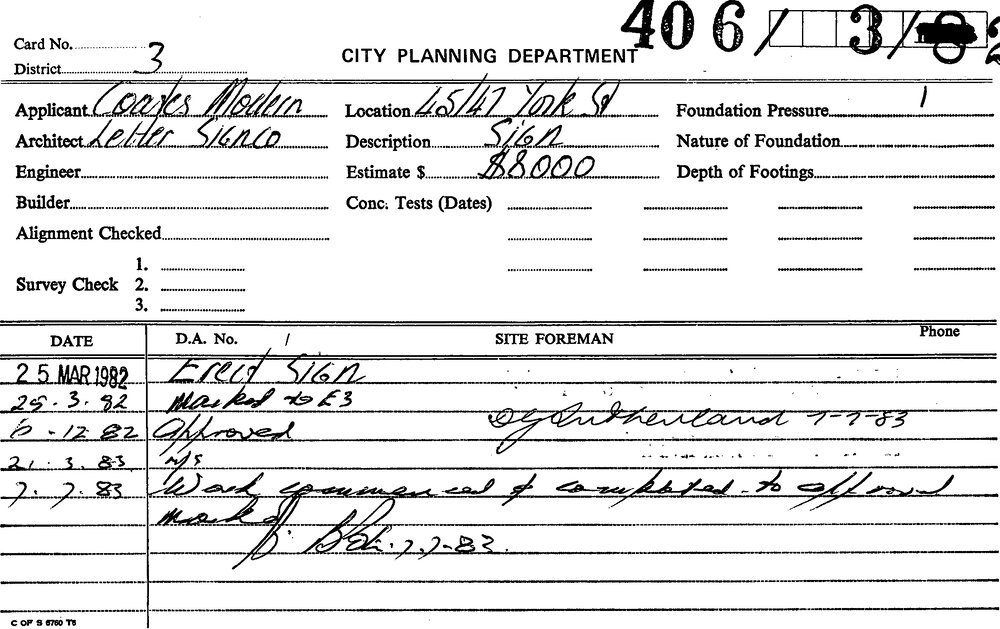 406/ 3/82
Card No.
CITY PLANNING DEPARTMENT
District 3
Applicant Coates Modern Location 45/47 York St Foundation Pressure
Architect Letter Signco Description Sign Nature of Foundation
Engineer Estimate $ $8000 Depth of Footings
Builder Conc. Tests (Dates)
Alignment Checked
1.
Survey Check 2.
3.
DATE D.A. No. / SITE FOREMAN Phone
25 MAR 1982 Erect Sign
29.3.82 Marked to E3
6.12.82 Approved Sutherland 7-7-83
21.3.83 n/s
7.7.83 Work commenced & completed to approval
marked
7.7-83.
C OF S 6760 T6